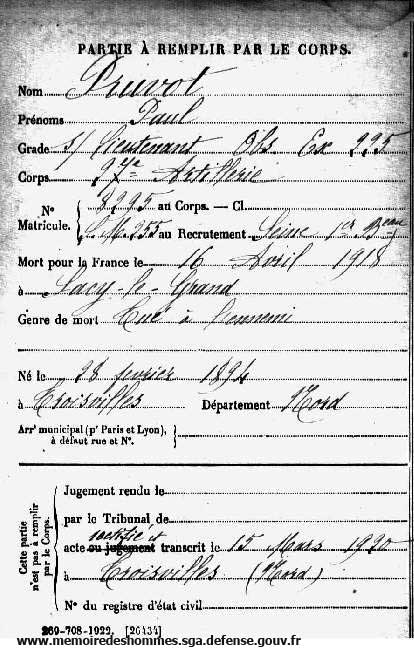 PARTIE À REMPLIR PAR LE CORPS.
Nom Pruvot
Prénoms Paul
Grade S/ Lieutenant Obs Ex 225
Corps 27e Artillerie
N° Matricule. { 8295 au Corps. — Cl.
au Recrutement Seine 1er Beau
Mort pour la France le 16 Avril 1918
à Sacy-le-Grand
Genre de mort Tué à l'ennemi
Né le 28 février 1894
à Troisvilles Département Nord
Arrt municipal (pr Paris et Lyon), à défaut rue et N°.
Cette partie n'est pas à remplir par le Corps.
Jugement rendu le
par le Tribunal de
rectifié et
acte ou jugement transcrit le 15 Mars 1920
à Troisvilles (Nord)
N° du registre d'état civil
269-708-1922. [26434]
www.memoiredeshommes.sga.defense.gouv.fr